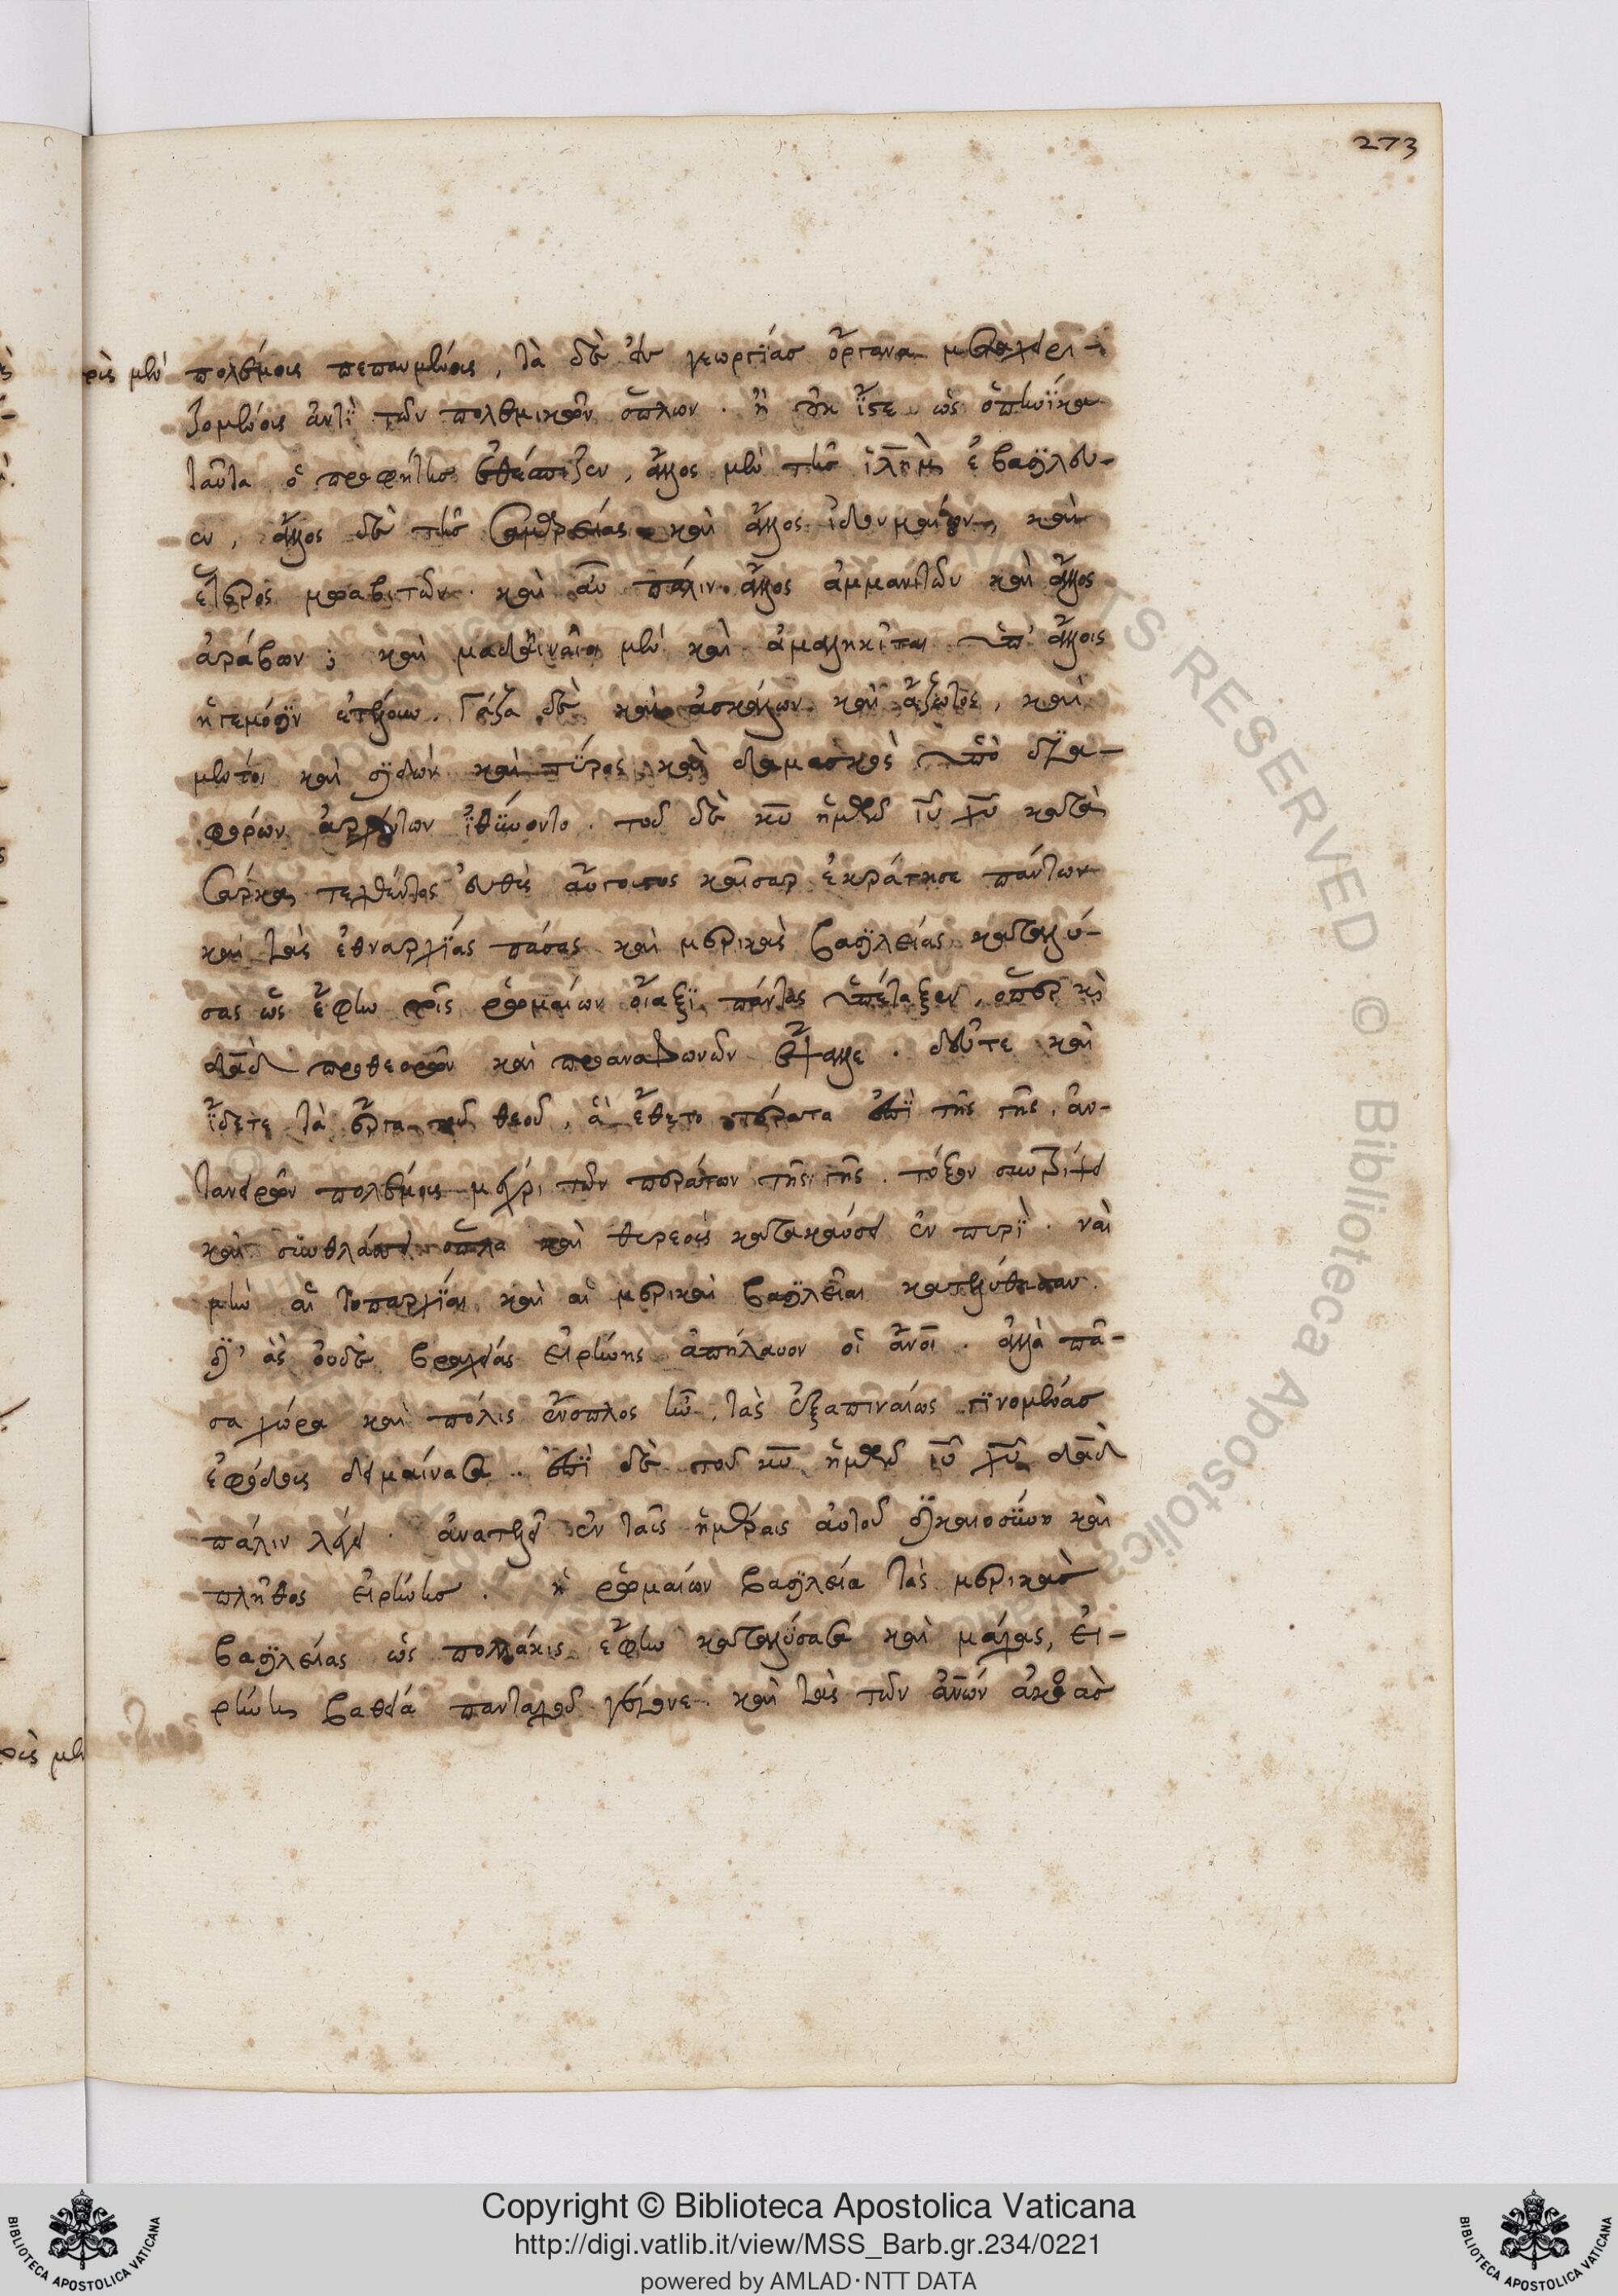 273
τοὺς μὲν πολέμους πεπαυμένους, τὰ δὲ ἐκ γεωργίας ὄργανα μεταχειρι-
ζομένους ἀντὶ τῶν πολεμικῶν ὅπλων. ἢ οὐκ ἴστε ὡς ὁπηνίκα
ταῦτα ὁ προφήτης ἐθέσπιζεν, ἄλλος μὲν τῆς ἱλῆμ ἐβασίλευ-
εν, ἄλλος δὲ τῆς Σαμαρείας καὶ ἄλλος ἰδουμαίων, καὶ
ἕτερος μωαβιτῶν. καὶ αὖ πάλιν ἄλλος ἀμμανιτῶν καὶ ἄλλος
ἀράβων; καὶ μαδιηναῖοι μὲν καὶ ἀμαληκῖται ὑπ' ἄλλοις
ἡγεμόσιν ἐτέλουν. Γάζα δὲ καὶ ἀσκάλων καὶ ἄζωτος, καὶ
μέντοι καὶ σιδὼν καὶ τύρος καὶ δαμασκὸς ὑπὸ δια-
φόρων ἀρχόντων ἰθύνοντο. τοῦ δὲ κυ ἡμῶν ιυ χυ κατὰ
σάρκα τεχθέντος εὐθὺς αὔγουστος καῖσαρ ἐκράτησε πάντων
καὶ τὰς ἐθναρχίας πάσας καὶ μερικὰς βασιλείας καταλύ-
σας ὡς ἔφην τοῖς ῥωμαίων οἴαξι πάντας ὑπέταξεν, ὅπερ κὶ
δαδ προθεωρῶν καὶ προαναφωνῶν ἔψαλλε. δεῦτε καὶ
ἴδετε τὰ ἔργα τοῦ θεοῦ, ἃ ἔθετο τέρατα ἐπὶ τῆς γῆς, ἀν-
ταναιρῶν πολέμους μέχρι τῶν περάτων τῆς γῆς. τόξον συντρίψει
καὶ συνθλάσει ὅπλα καὶ θυρεοὺς κατακαύσει ἐν πυρί. ναὶ
μὴν αἱ τοπαρχίαι καὶ αἱ μερικαὶ βασιλεῖαι κατελύθησαν.
δι' ἃς οὐδὲ βραχείας εἰρήνης ἀπήλαυον οἱ ἄνοι. ἀλλὰ πᾶ-
σα χώρα καὶ πόλις ἔνοπλος ἦν, τὰς ἐξαπιναίως γινομένας
ἐφόδους δειμαίνουσα. ἐπὶ δὲ τοῦ κυ ἡμῶν ιυ χυ δαδ
πάλιν λέγει. ἀνατελεῖ ἐν ταῖς ἡμέραις αὐτοῦ δικαιοσύνη καὶ
πλῆθος εἰρήνης. ἡ ῥωμαίων βασιλεία τὰς μερικὰς
βασιλείας ὡς πολλάκις ἔφην καταλύσασα καὶ μάχας, εἰ-
ρήνη βαθεῖα πανταχοῦ γέγονε. καὶ τὰς τῶν ἀνων ἀκοὰς
Copyright © Biblioteca Apostolica Vaticana
http://digi.vatlib.it/view/MSS_Barb.gr.234/0221
powered by AMLAD·NTT DATA